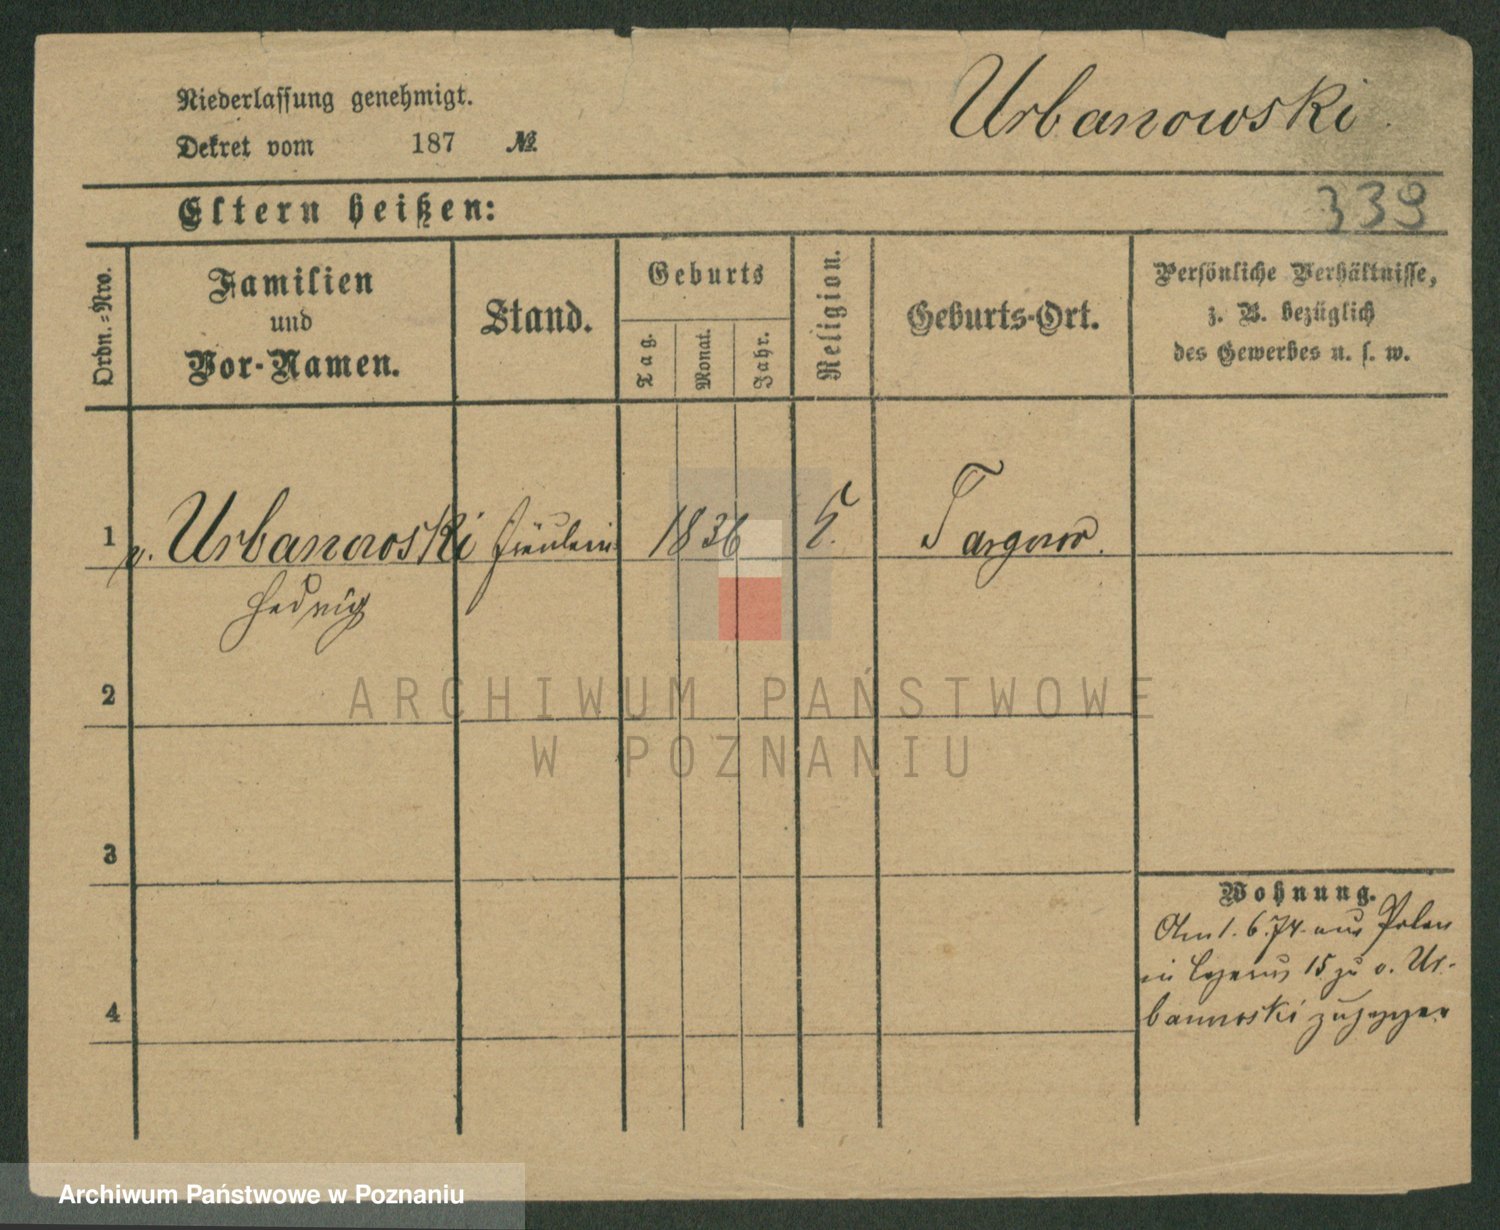 Niederlassung genehmigt.
Dekret vom 187 №
Urbanowski
Eltern heißen:
339
Ordn.-Nro.
Familien
und
Vor-Namen.
Stand.
Geburts
Tag.
Monat.
Jahr.
Religion.
Geburts-Ort.
Persönliche Verhältnisse,
z. B. bezüglich
des Gewerbes u. s. w.
1 v. Urbanowski Fräulein 1836 Targowo.
Hedwig
2
3
4
Wohnung.
Am 1. 6. 74. aus Polen
in 15 zu v. Ur-
banowski zugezogen
ARCHIWUM PAŃSTWOWE
W POZNANIU
Archiwum Państwowe w Poznaniu